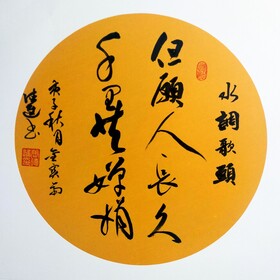 水調歌頭
但願人長久
千里共嬋娟
庚子秋月
建書